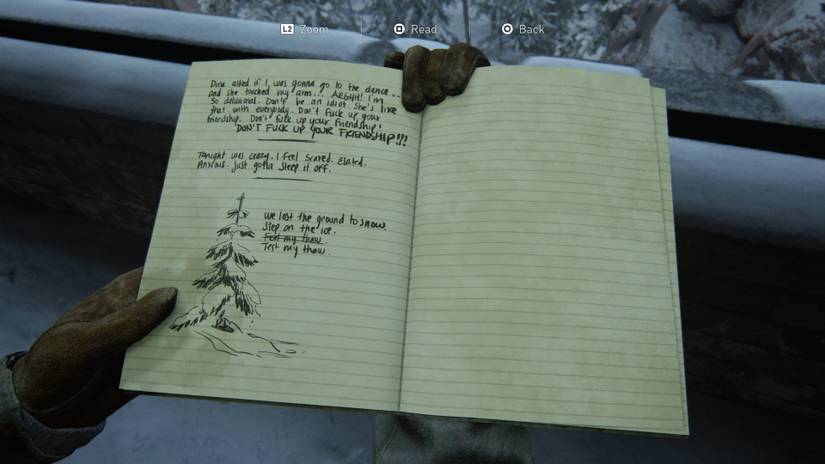 L2 Zoom
Read
Back
Dina asked if I was gonna go to the dance...
and she touched my arm... ARGHH! I'm
so delusional. Don't be an idiot. She's like
that with everybody. Don't fuck up your
friendship. Don't fuck up your friendship!
DON'T FUCK UP YOUR FRIENDSHIP!!!
Tonight was crazy. I feel scared. Elated.
Anxious. Just gotta sleep it off.
We lost the ground to snow.
Step on the ice.
Feel my thaw.
Test my thaw.